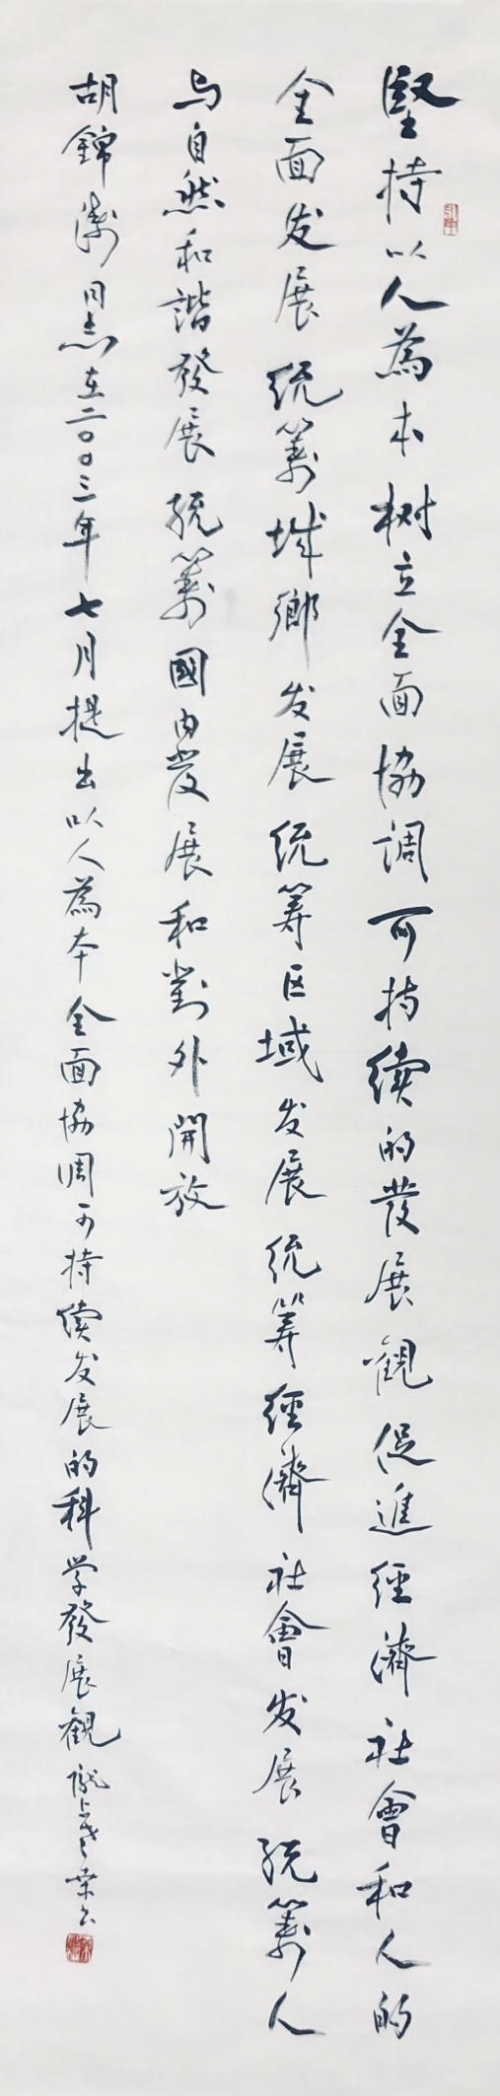 堅持以人為本树立全面協调可持续的發展觀促進經濟社會和人的
全面发展统籌城鄉发展统筹区域发展统筹經濟社會发展統籌人
与自然和諧發展統籌國内發展和對外開放
胡錦濤同志在二〇〇三年七月提出以人為本全面協调可持续发展的科学發展觀隴上